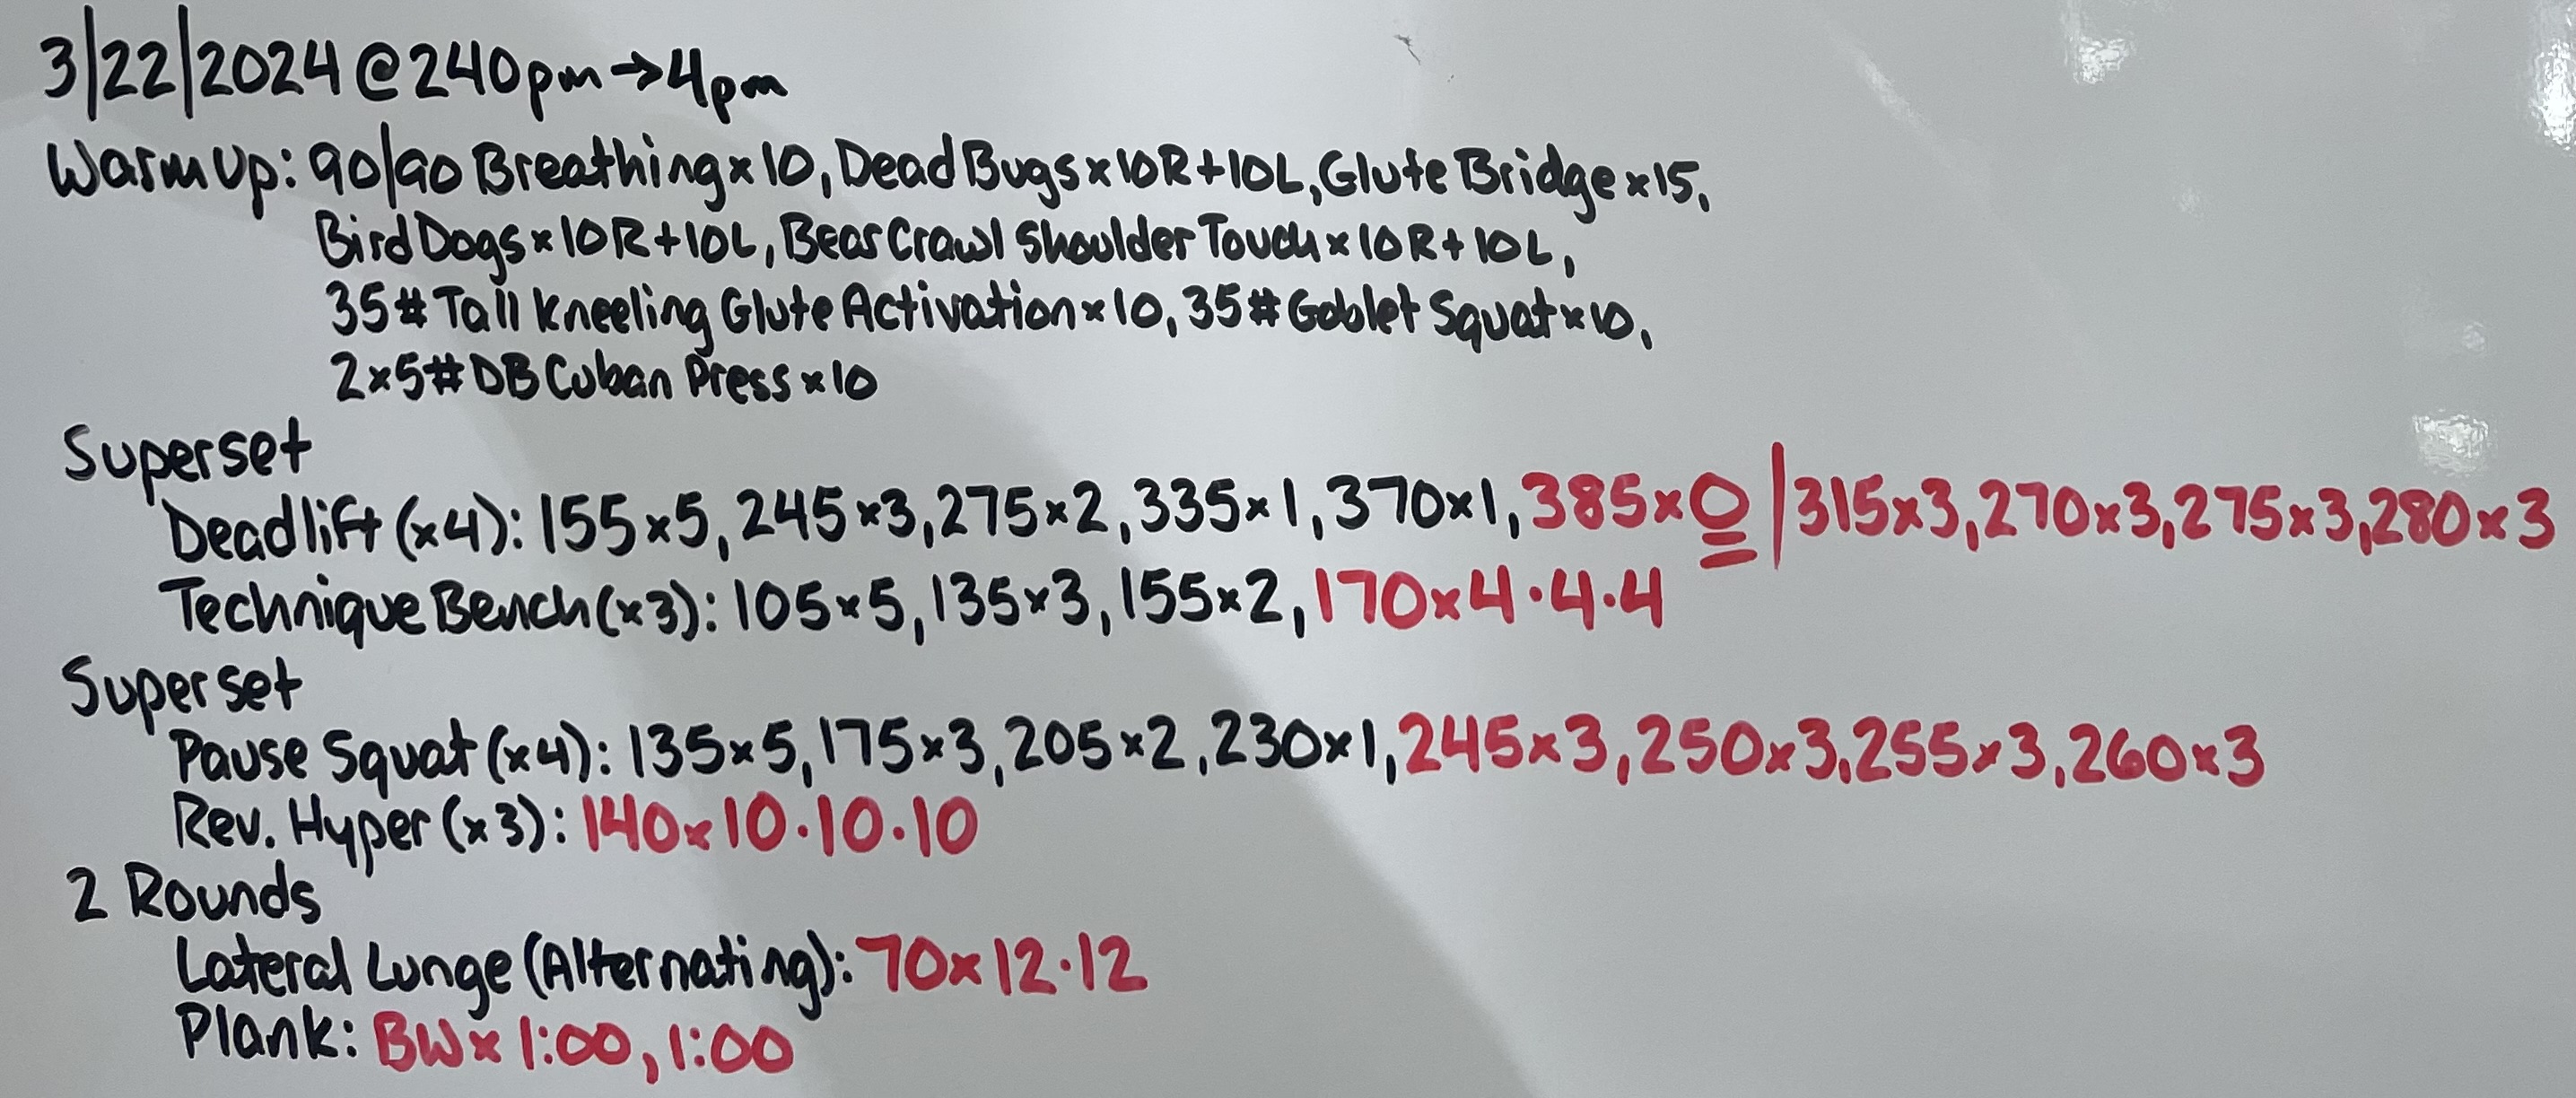 3/22/2024 @ 240pm → 4pm
Warm Up: 90/90 Breathing x 10, Dead Bugs x 10R + 10L, Glute Bridge x 15,
Bird Dogs x 10R + 10L, Bear Crawl Shoulder Touch x 10R + 10L,
35# Tall Kneeling Glute Activation x 10, 35# Goblet Squat x 10,
2x5# DB Cuban Press x 10
Superset
Deadlift (x4): 155x5, 245x3, 275x2, 335x1, 370x1, 385x0 | 315x3, 270x3, 275x3, 280x3
Technique Bench (x3): 105x5, 135x3, 155x2, 170x4·4·4
Superset
Pause Squat (x4): 135x5, 175x3, 205x2, 230x1, 245x3, 250x3, 255x3, 260x3
Rev. Hyper (x3): 140x10·10·10
2 Rounds
Lateral Lunge (Alternating): 70x12·12
Plank: BW x 1:00, 1:00